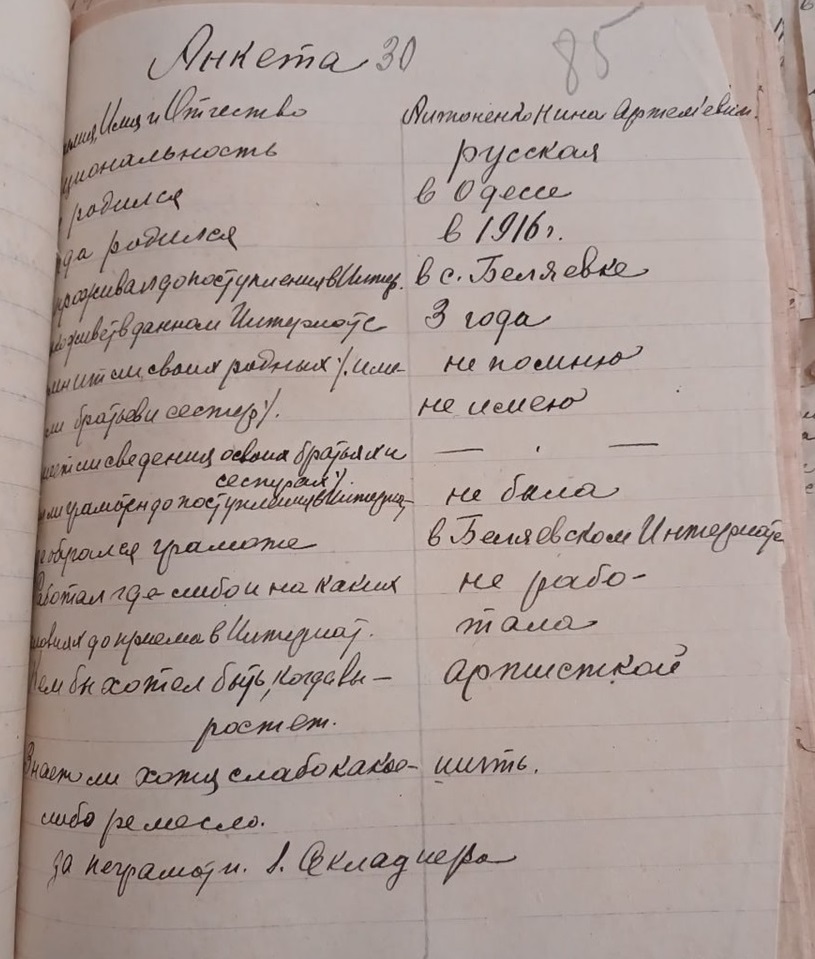 Анкета 30
85
Имя и Отчество Антоненко Нина Артемʼевич.
циональность русская
родился в Одессе
да родился в 1916 г.
проживал до поступления в Интер. в с. Беляевке
живет в данном Интернате 3 года
нит ли своих родных /. име- не помню
ли братьев и сестер /. не имею
ет ли сведения о своих братьях и — . —
сестрах /.
ли грамотен до поступления в Интернат не была
обучался грамоте в Беляевском Интернате
Работал где либо и на каких не рабо-
ловиях до приема в Интернат. тала
Кем бы хотел быть, когда вы- артисткой
ростет.
Знает ли хотя слабо какое- шить.
либо ремесло.
За неграмотн.